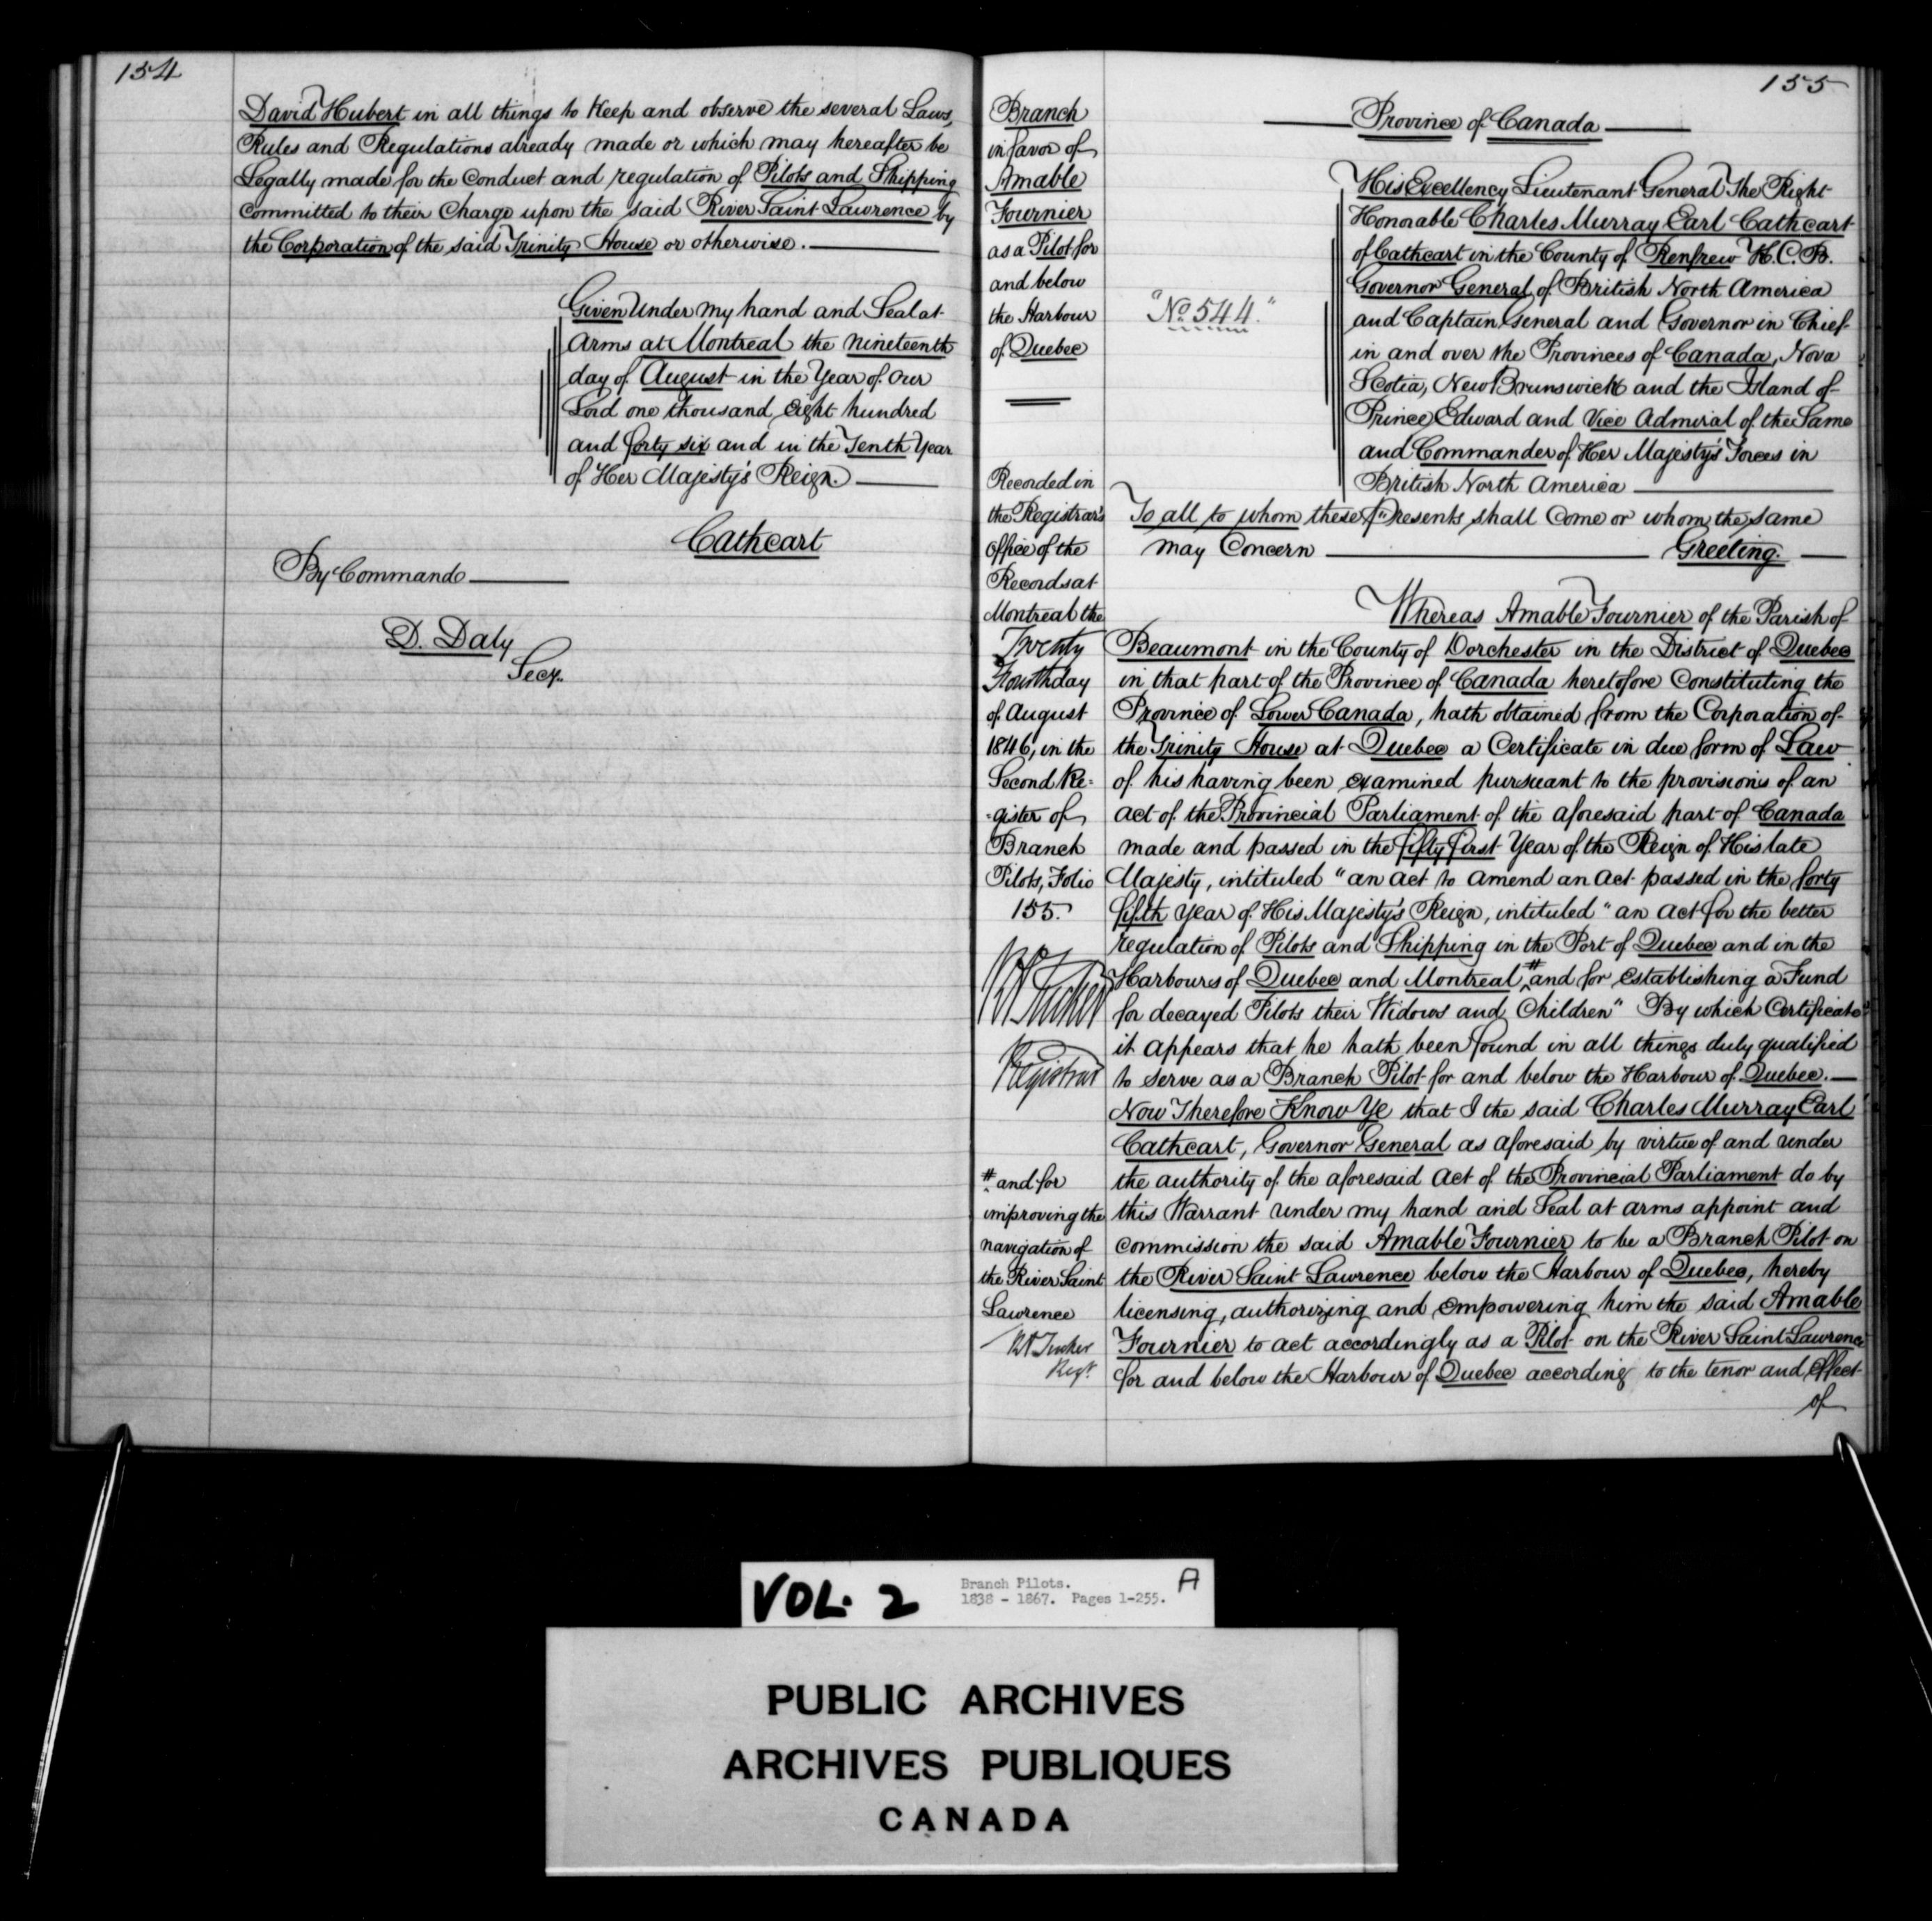 154
David Hubert in all things to Keep and observe the several Laws,
Rules and Regulations already made or which may hereafter be
Legally made for the Conduct and regulation of Pilots and Shipping
Committed to their Charge upon the said River Saint Lawrence by
the Corporation of the said Trinity House or otherwise.
Given Under my hand and Seal at
Arms at Montreal the nineteenth
day of August in the Year of Our
Lord one thousand eight hundred
and forty six and in the Tenth Year
of Her Majesty's Reign.
Cathcart
By Command
D. Daly
Secy.
155
Branch
in favor of
Amable
Fournier
as a Pilot for
and below
the Harbour
of Quebec
Recorded in
the Registrar's
Office of the
Records at
Montreal the
Twenty
Fourth day
of August
1846, in the
Second Re=
=gister of
Branch
Pilots, Folio
155.
RATucker
Registrar
# and for
improving the
navigation of
the River Saint
Lawrence
RATucker
Regr.
Province of Canada
"No. 544."
His Excellency Lieutenant General The Right
Honorable Charles Murray Earl Cathcart
of Cathcart in the County of Renfrew K.C.B.
Governor General of British North America
and Captain General and Governor in Chief
in and over the Provinces of Canada, Nova
Scotia, New Brunswick and the Island of
Prince Edward and Vice Admiral of the Same
and Commander of Her Majesty's Forces in
British North America
To all to whom these Presents shall Come or whom the same
may Concern Greeting.
Whereas Amable Fournier of the Parish of
Beaumont in the County of Dorchester in the District of Quebec
in that part of the Province of Canada heretofore Constituting the
Province of Lower Canada, hath obtained from the Corporation of
the Trinity House at Quebec a Certificate in due form of Law
of his having been examined pursuant to the provisions of an
Act of the Provincial Parliament of the aforesaid part of Canada
made and passed in the fifty first Year of the Reign of His late
Majesty, intituled "an Act to amend an Act passed in the forty
fifth Year of His Majesty's Reign, intituled "an Act for the better
regulation of Pilots and Shipping in the Port of Quebec and in the
Harbours of Quebec and Montreal,# and for establishing a Fund
for decayed Pilots their Widows and Children" By which Certificate
it appears that he hath been found in all things duly qualified
to serve as a Branch Pilot for and below the Harbour of Quebec.
Now Therefore Know Ye that I the said Charles Murray Earl
Cathcart, Governor General as aforesaid by virtue of and under
the authority of the aforesaid Act of the Provincial Parliament do by
this Warrant under my hand and Seal at arms appoint and
commission the said Amable Fournier to be a Branch Pilot on
the River Saint Lawrence below the Harbour of Quebec, hereby
licensing, authorizing and empowering him the said Amable
Fournier to act accordingly as a Pilot on the River Saint Lawrence
for and below the Harbour of Quebec according to the tenor and effect
of
VOL. 2
Branch Pilots.
1838 - 1867. Pages 1-255.
A
PUBLIC ARCHIVES
ARCHIVES PUBLIQUES
CANADA